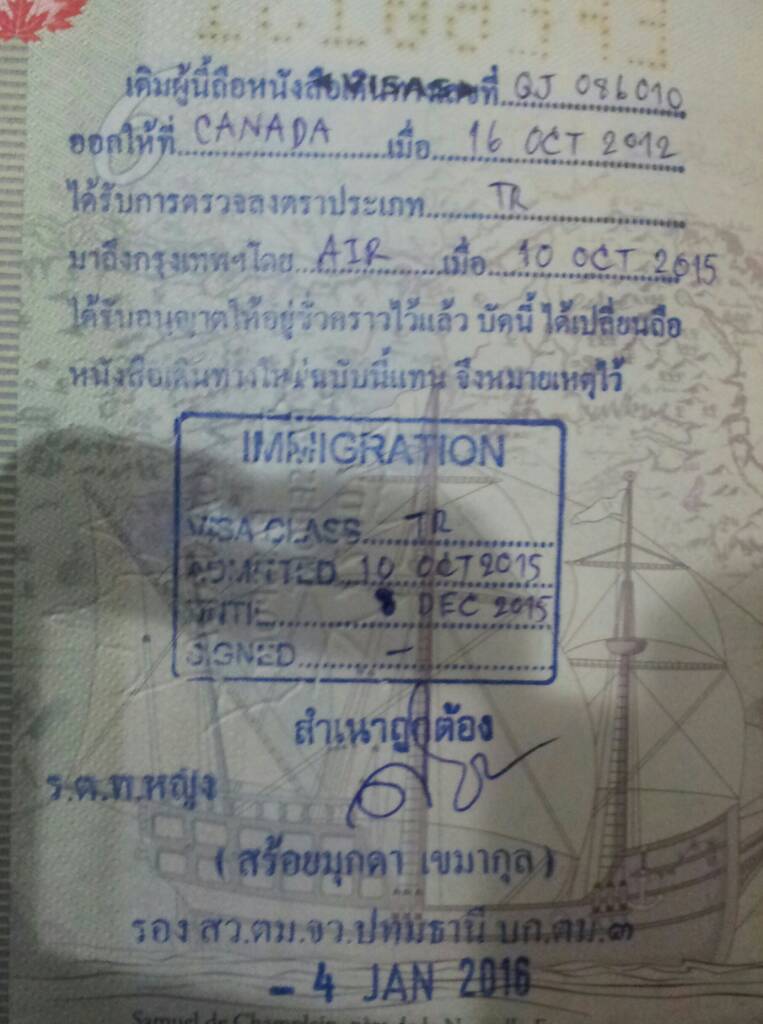 เดิมผู้นี้ถือหนังสือเดินทางเลขที่ QJ 086010
ออกให้ที่ CANADA เมื่อ 16 OCT 2012
ได้รับการตรวจลงตราประเภท TR
มาถึงกรุงเทพฯโดย AIR เมื่อ 10 OCT 2015
ได้รับอนุญาตให้อยู่ชั่วคราวไว้แล้ว บัดนี้ ได้เปลี่ยนถือ
หนังสือเดินทางใหม่ฉบับนี้แทน จึงหมายเหตุไว้
IMMIGRATION
VISA CLASS TR
ADMITTED 10 OCT 2015
UNTIL 8 DEC 2015
SIGNED -
สำเนาถูกต้อง
ร.ต.ท.หญิง
( สร้อยมุกดา เขมากุล )
รอง สว.ตม.จว.ปทุมธานี บก.ตม.๓
- 4 JAN 2016
Samuel de Champlain, père de la Nouvelle